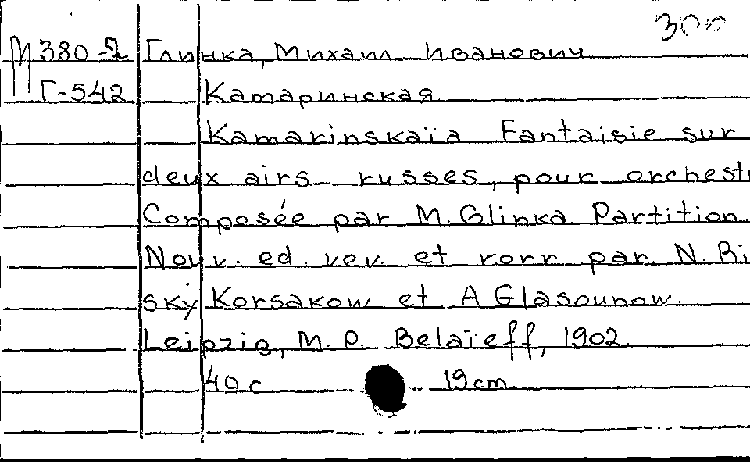 300
М 380-2 Глинка, Михаил Иванович
Г-542 Камаринская
Kamarinskaïa Fantaisie sur
deux airs russes, pour orchest
Composée par M. Glinka Partition
Nouv. ed. rev. et corr par N. Ri
sky Korsakow et A Glasounow
Leipzig, M. P. Belaïeff, 1902
40 с 19 cm